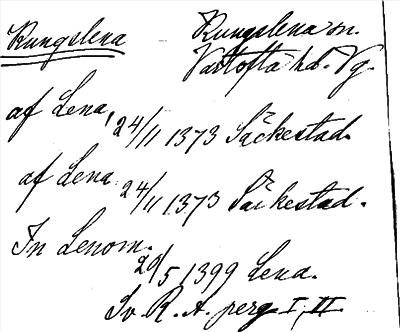 Rungslena Rungslena sn.
Vartofta hd. Vg.
af Lena, 24/11 1373 Säckestad.
af Lena. 24/11 1373 Särkestad.
In Lenom. 20/5 1399 Lena.
Sv. R. A. perg I, II